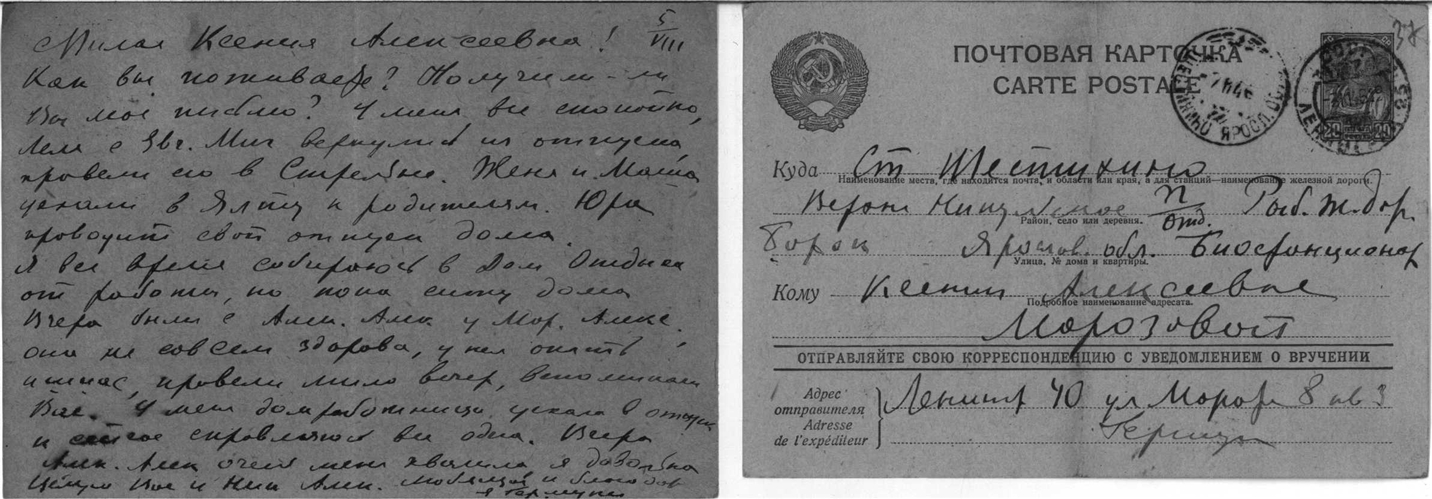 Милая Ксения Алексеевна! 5/VIII
Как вы поживаете? Получили-ли
Вы мое письмо? У меня все спокойно,
Леля с Евг. Мих вернулись из отпуска
провели его в Стрельне. Женя и Маша
уехали в Ялту к родителям. Юра
проводит свой отпуск дома.
Я все время собираюсь в Дом Отдыха
от работы, но пока сижу дома
Вчера были с Алек. Алек у Мар. Алекс.
она не совсем здорова, у нея опять
ишиас, провели мило вечер, вспоминали
Вас. У меня домработница уехала в отпуск
и справляюсь все одна. Вчера
Алек. Алек очень меня хвалила, я довольна
Целую Вас и Ник Алек. Любящая и
37
ПОЧТОВАЯ КАРТОЧКА
CARTE POSTALE
ШЕСТИХИНО ЯРОСЛ. ОБЛ.
Куда Ст Шестихино
Наименование места, где находится почта, и области или края, а для станций—наименование железной дороги.
Верхне Никульское п/отд. Рыб. ж. дор.
Район, село или деревня.
Борок Яросл. обл. Биостанционар
Улица, № дома и квартиры.
Кому Ксении Алексеевне
Подробное наименование адресата.
Морозовой
ОТПРАВЛЯЙТЕ СВОЮ КОРРЕСПОНДЕНЦИЮ С УВЕДОМЛЕНИЕМ О ВРУЧЕНИИ
Адрес
отправителя
Adresse
de l'expéditeur
Ленингр 40 ул Марата 8 кв 3